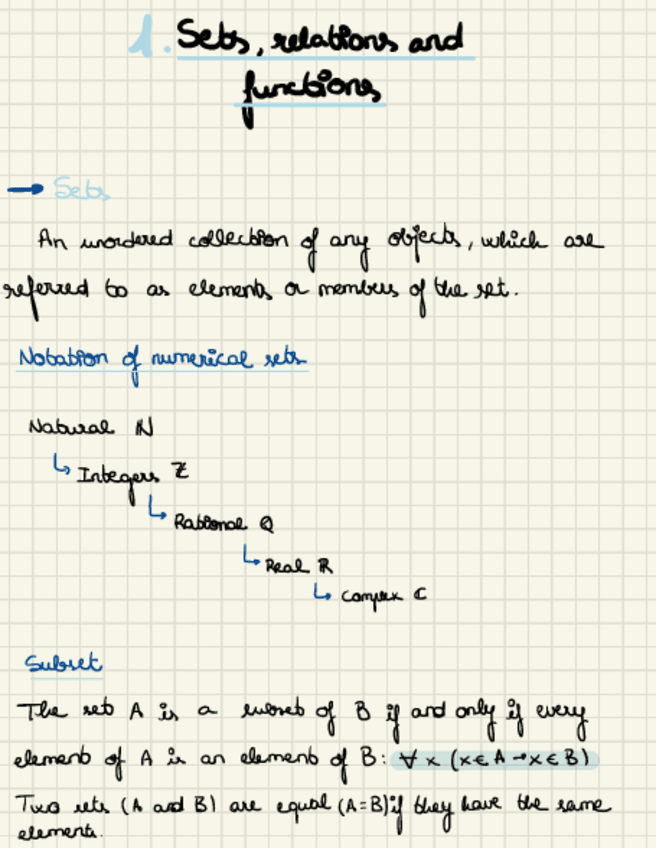 1. Sets, relations and
functions
→ Sets
An unordered collection of any objects, which are
referred to as elements or members of the set.
Notation of numerical sets
Natural ℕ
↳ Integers ℤ
↳ Rational ℚ
↳ Real ℝ
↳ Complex ℂ
Subset
The set A is a subset of B if and only if every
element of A is an element of B: ∀ x (x ∈ A → x ∈ B)
Two sets (A and B) are equal (A=B) if they have the same
elements.